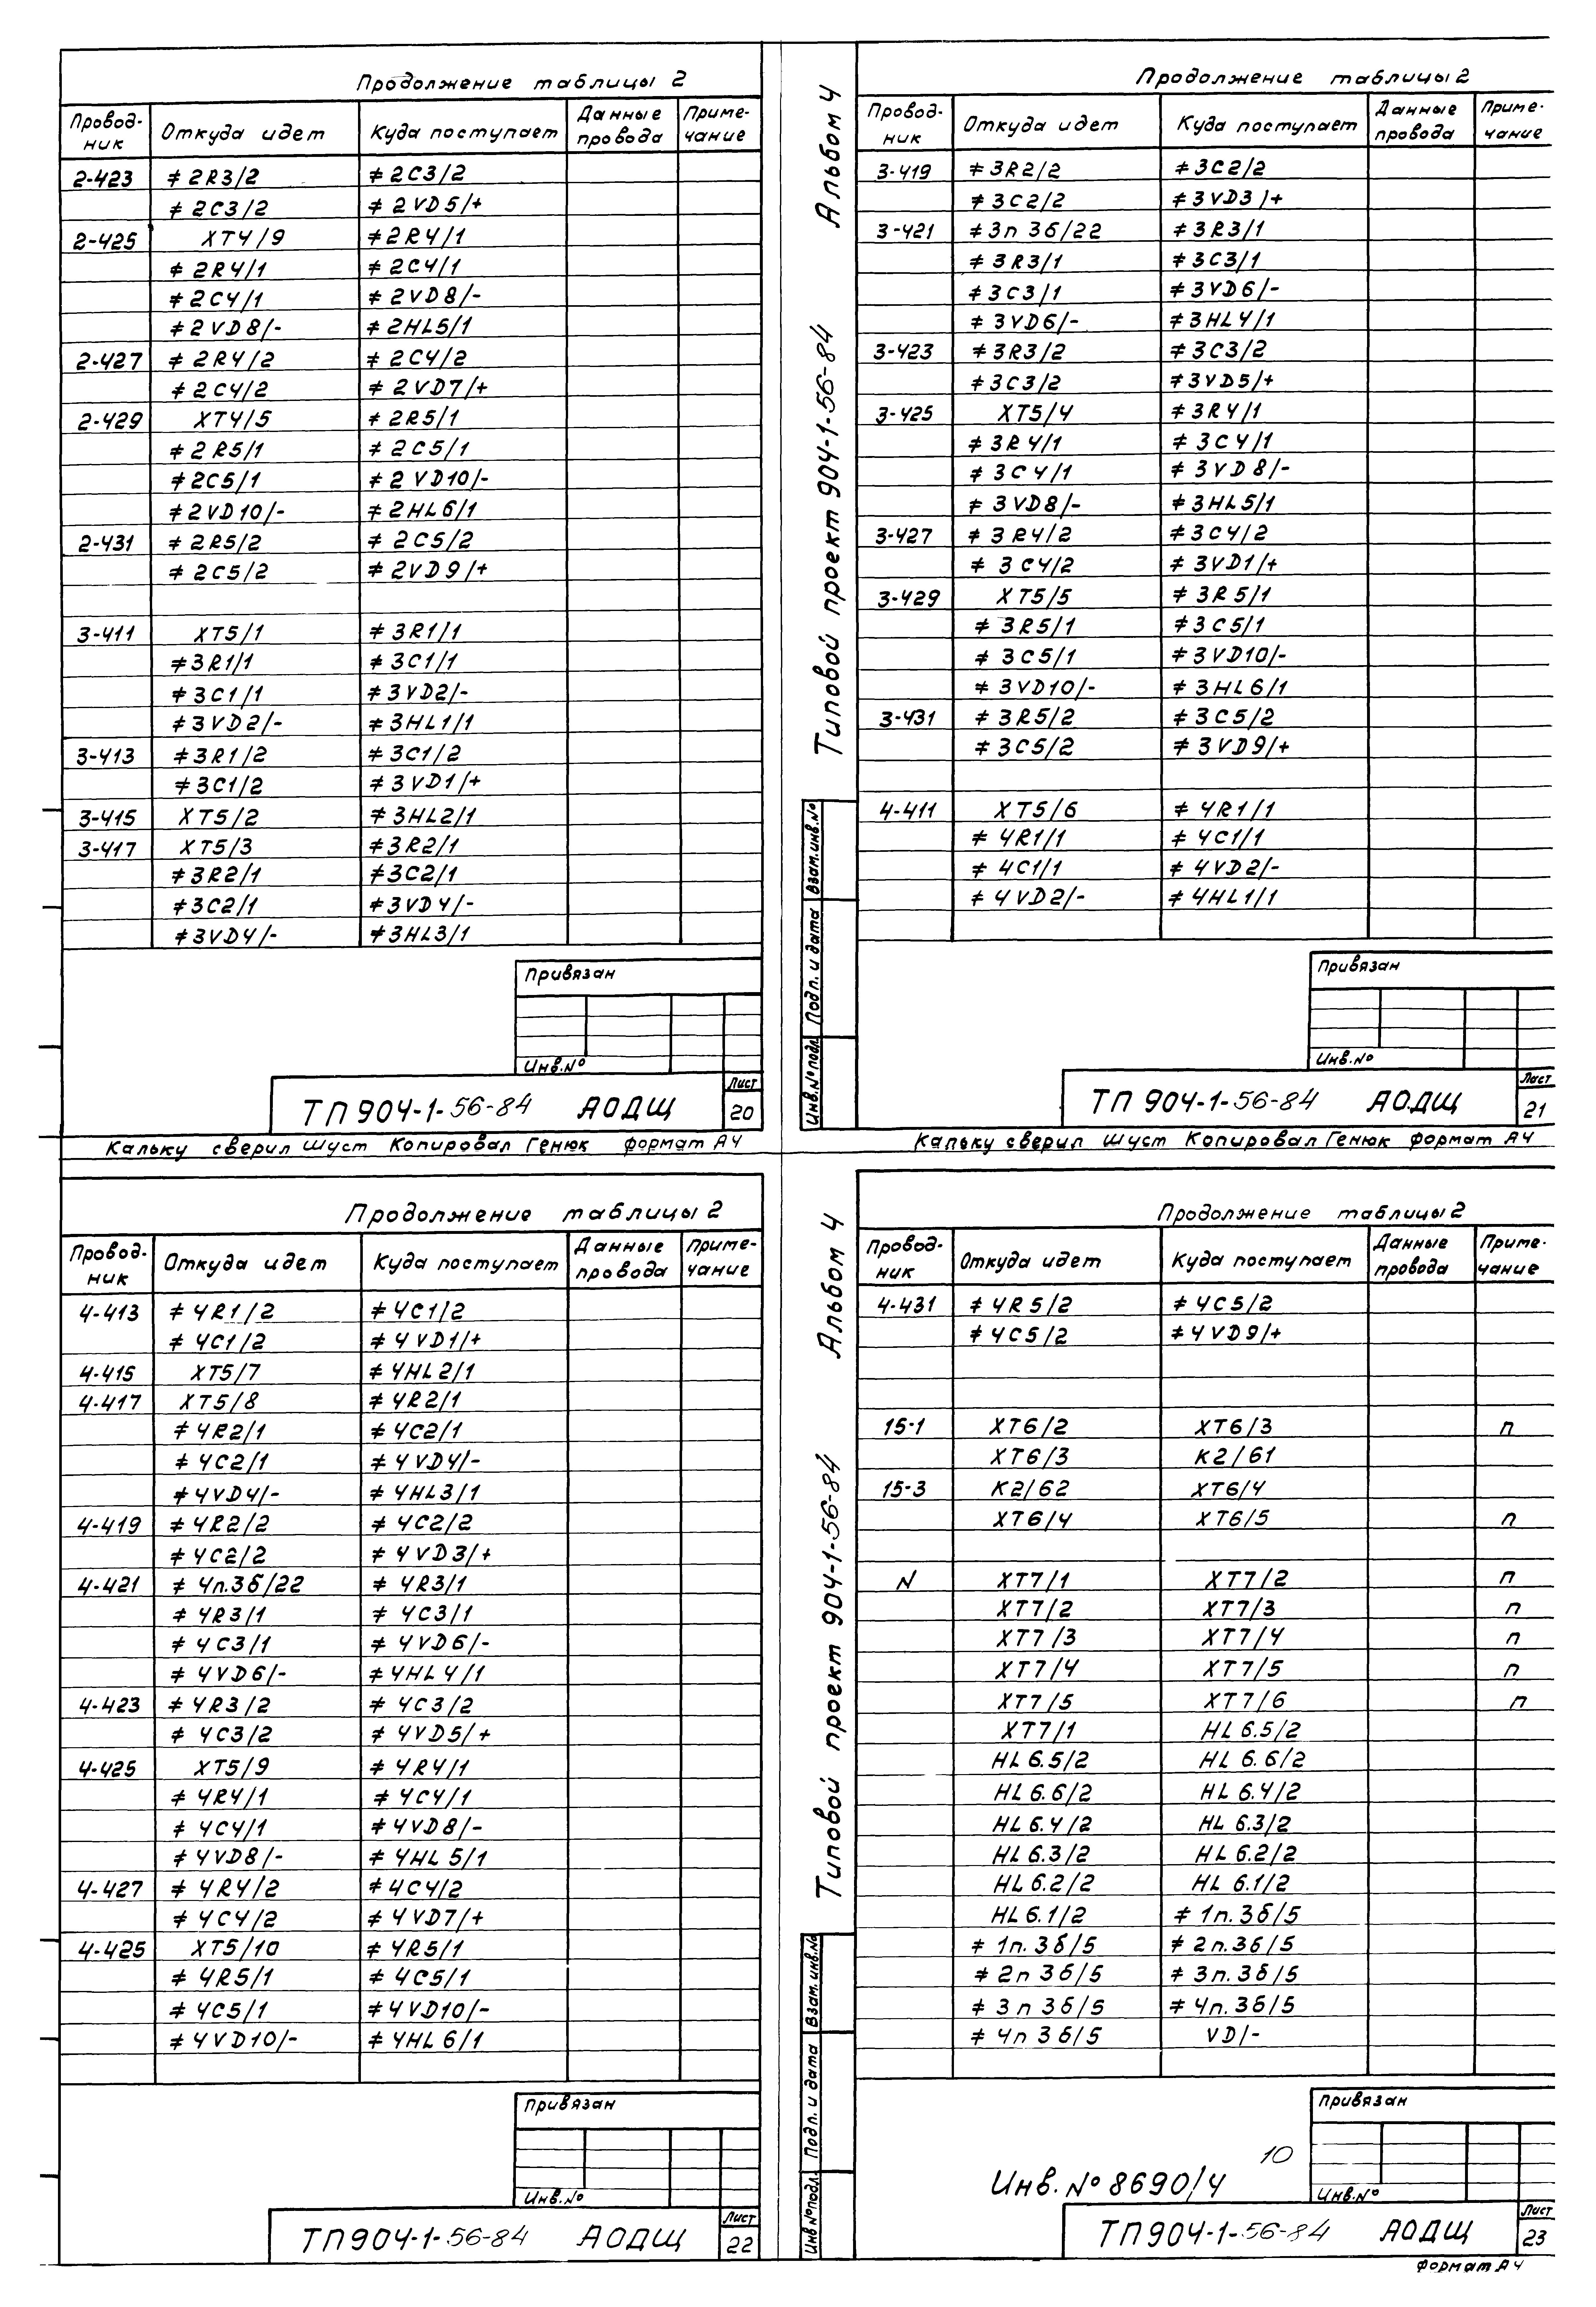 Продолжение таблицы 2
Провод-ник Откуда идет Куда поступает Данные провода Приме-чание
2-423 ≠ 2R3/2 ≠ 2C3/2
≠ 2C3/2 ≠ 2VD5/+
2-425 XT4/9 ≠ 2R4/1
≠ 2R4/1 ≠ 2C4/1
≠ 2C4/1 ≠ 2VD8/-
≠ 2VD8/- ≠ 2HL5/1
2-427 ≠ 2R4/2 ≠ 2C4/2
≠ 2C4/2 ≠ 2VD7/+
2-429 XT4/5 ≠ 2R5/1
≠ 2R5/1 ≠ 2C5/1
≠ 2C5/1 ≠ 2VD10/-
≠ 2VD10/- ≠ 2HL6/1
2-431 ≠ 2R5/2 ≠ 2C5/2
≠ 2C5/2 ≠ 2VD9/+
3-411 XT5/1 ≠ 3R1/1
≠ 3R1/1 ≠ 3C1/1
≠ 3C1/1 ≠ 3VD2/-
≠ 3VD2/- ≠ 3HL1/1
3-413 ≠ 3R1/2 ≠ 3C1/2
≠ 3C1/2 ≠ 3VD1/+
3-415 XT5/2 ≠ 3HL2/1
3-417 XT5/3 ≠ 3R2/1
≠ 3R2/1 ≠ 3C2/1
≠ 3C2/1 ≠ 3VD4/-
≠ 3VD4/- ≠ 3HL3/1
Привязан
Инв.№
ТП 904-1-56-84 АОДЩ Лист 20
Кальку сверил Шуст Копировал Генюк формат А4
Альбом 4
Типовой проект 904-1-56-84
Взам.инв.№
Подп. и дата
Инв.№ подл.
Продолжение таблицы 2
Провод-ник Откуда идет Куда поступает Данные провода Приме-чание
3-419 ≠ 3R2/2 ≠ 3C2/2
≠ 3C2/2 ≠ 3VD3/+
3-421 ≠ 3п 3б/22 ≠ 3R3/1
≠ 3R3/1 ≠ 3C3/1
≠ 3C3/1 ≠ 3VD6/-
≠ 3VD6/- ≠ 3HL4/1
3-423 ≠ 3R3/2 ≠ 3C3/2
≠ 3C3/2 ≠ 3VD5/+
3-425 XT5/4 ≠ 3R4/1
≠ 3R4/1 ≠ 3C4/1
≠ 3C4/1 ≠ 3VD8/-
≠ 3VD8/- ≠ 3HL5/1
3-427 ≠ 3R4/2 ≠ 3C4/2
≠ 3C4/2 ≠ 3VD1/+
3-429 XT5/5 ≠ 3R5/1
≠ 3R5/1 ≠ 3C5/1
≠ 3C5/1 ≠ 3VD10/-
≠ 3VD10/- ≠ 3HL6/1
3-431 ≠ 3R5/2 ≠ 3C5/2
≠ 3C5/2 ≠ 3VD9/+
4-411 XT5/6 ≠ 4R1/1
≠ 4R1/1 ≠ 4C1/1
≠ 4C1/1 ≠ 4VD2/-
≠ 4VD2/- ≠ 4HL1/1
Привязан
Инв.№
ТП 904-1-56-84 АОДЩ Лист 21
Кальку сверил Шуст Копировал Генюк формат А4
Продолжение таблицы 2
Провод-ник Откуда идет Куда поступает Данные провода Приме-чание
4-413 ≠ 4R1/2 ≠ 4C1/2
≠ 4C1/2 ≠ 4VD1/+
4-415 XT5/7 ≠ 4HL2/1
4-417 XT5/8 ≠ 4R2/1
≠ 4R2/1 ≠ 4C2/1
≠ 4C2/1 ≠ 4VD4/-
≠ 4VD4/- ≠ 4HL3/1
4-419 ≠ 4R2/2 ≠ 4C2/2
≠ 4C2/2 ≠ 4VD3/+
4-421 ≠ 4п.3б/22 ≠ 4R3/1
≠ 4R3/1 ≠ 4C3/1
≠ 4C3/1 ≠ 4VD6/-
≠ 4VD6/- ≠ 4HL4/1
4-423 ≠ 4R3/2 ≠ 4C3/2
≠ 4C3/2 ≠ 4VD5/+
4-425 XT5/9 ≠ 4R4/1
≠ 4R4/1 ≠ 4C4/1
≠ 4C4/1 ≠ 4VD8/-
≠ 4VD8/- ≠ 4HL5/1
4-427 ≠ 4R4/2 ≠ 4C4/2
≠ 4C4/2 ≠ 4VD7/+
4-425 XT5/10 ≠ 4R5/1
≠ 4R5/1 ≠ 4C5/1
≠ 4C5/1 ≠ 4VD10/-
≠ 4VD10/- ≠ 4HL6/1
Привязан
Инв.№
ТП 904-1-56-84 АОДЩ Лист 22
Альбом 4
Типовой проект 904-1-56-84
Взам.инв.№
Подп. и дата
Инв№подл.
Продолжение таблицы 2
Провод-ник Откуда идет Куда поступает Данные провода Приме-чание
4-431 ≠ 4R5/2 ≠ 4C5/2
≠ 4C5/2 ≠ 4VD9/+
15-1 XT6/2 XT6/3 п
XT6/3 K2/61
15-3 K2/62 XT6/4
XT6/4 XT6/5 п
N XT7/1 XT7/2 п
XT7/2 XT7/3 п
XT7/3 XT7/4 п
XT7/4 XT7/5 п
XT7/5 XT7/6 п
XT7/1 HL6.5/2
HL6.5/2 HL6.6/2
HL6.6/2 HL6.4/2
HL6.4/2 HL6.3/2
HL6.3/2 HL6.2/2
HL6.2/2 HL6.1/2
HL6.1/2 ≠ 1п.3б/5
≠ 1п.3б/5 ≠ 2п.3б/5
≠ 2п 3б/5 ≠ 3п.3б/5
≠ 3п 3б/5 ≠ 4п.3б/5
≠ 4п 3б/5 VD/-
Привязан
10
Инв.№ 8690/4
Инв.№
ТП 904-1-56-84 АОДЩ Лист 23
Формат А4